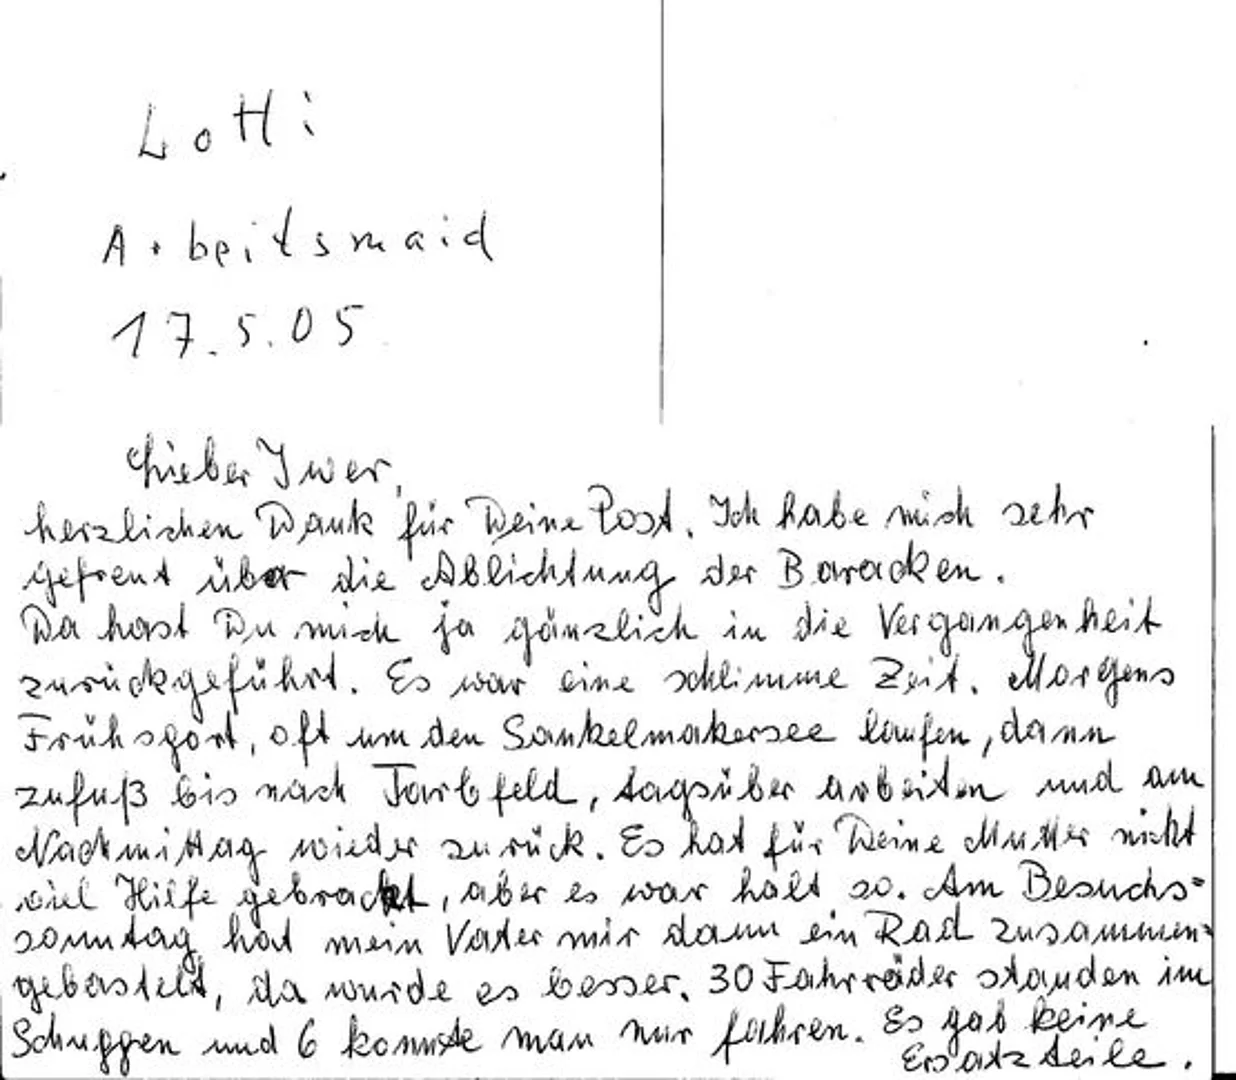 Lotti
Arbeitsmaid
17.5.05
Lieber Iwer,
herzlichen Dank für Deine Post. Ich habe mich sehr
gefreut über die Ablichtung der Baracken.
Da hast Du mich ja gänzlich in die Vergangenheit
zurückgeführt. Es war eine schlimme Zeit. Morgens
Frühsport, oft um den Sankelmakersee laufen, dann
zufuß bis nach Tarbfeld, tagsüber arbeiten und am
Nachmittag wieder zurück. Es hat für Deine Mutter nicht
viel Hilfe gebracht, aber es war halt so. Am Besuchs=
sonntag hat mein Vater mir dann ein Rad zusammen=
gebastelt, da wurde es besser. 30 Fahrräder standen im
Schuppen und 6 konnte man nur fahren. Es gab keine
Ersatzteile.